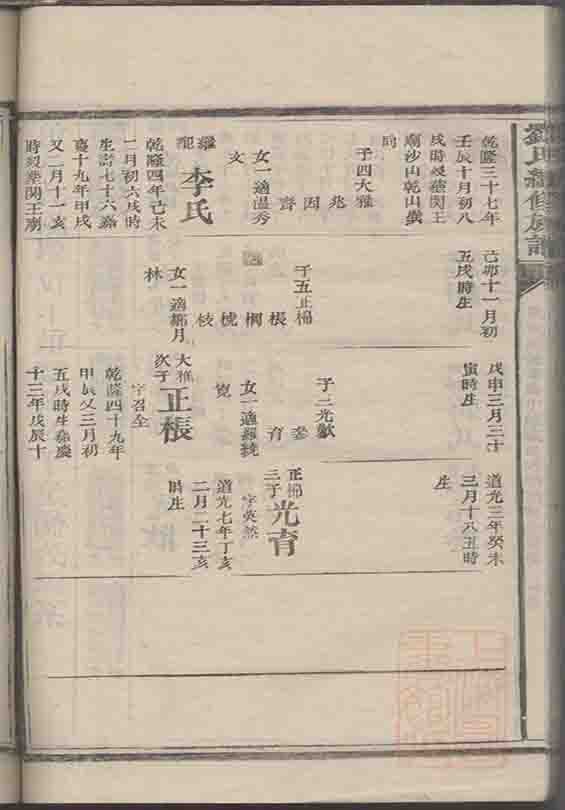 劉氏續修族譜
乾隆三十七年
壬辰十月初八
戌時
廟沙山乾山
同
子四大雅
兆
因
齊
女一適溫秀
文
李氏
乾隆四年己未
一月初六戌時
生壽七十六嘉
慶十九年甲戌
又二月十一亥
時歿葬関王廟
己卯十一月初
五戌時生
子五正楊
棖
桐
梡
枝
女一適鄒月
林
戊申三月三十
寅時生
子三光歡
育
寬
女一適羅繞
大雅
次子
正棖
字召全
乾隆四十九年
甲辰又三月初
五戌時生嘉慶
十三年戊辰十
道光三年癸未
三月十八丑時
生
三子
光育
字英然
道光七年丁亥
二月二十三亥
時生